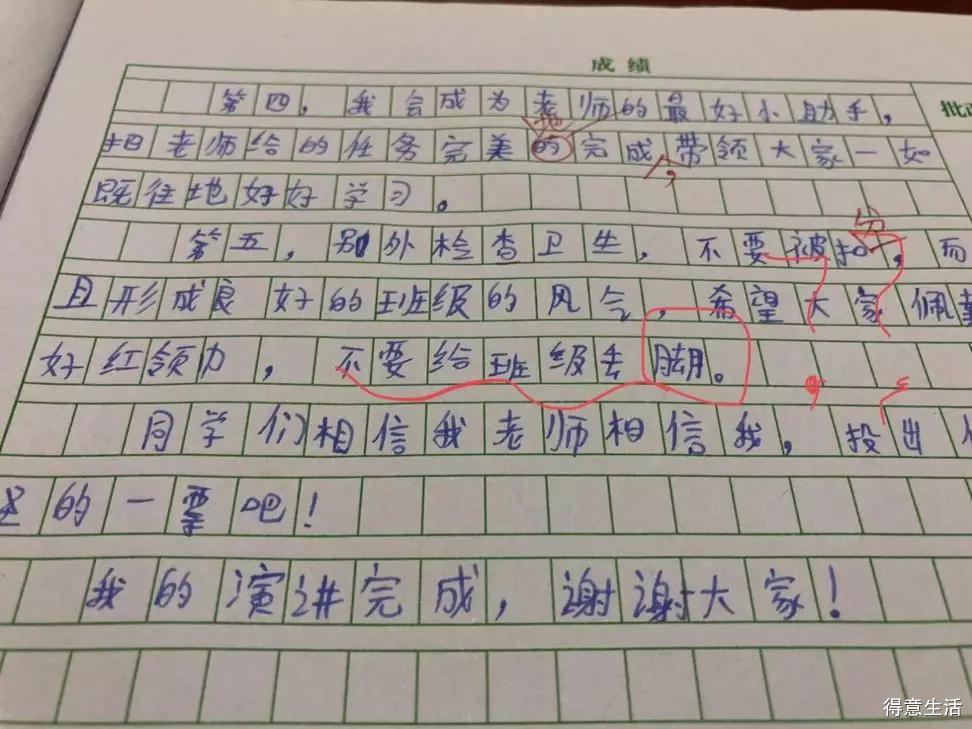 成绩
第四，我会成为老师的最好小助手，
把老师给的任务完美的完成，带领大家一如
既往地好好学习。
第五，另外检查卫生，不要被扣分，而
且形成良好的班级的风气，希望大家佩
好红领力，不要给班级丢脚。
同学们相信我老师相信我，投出
的一票吧！
我的演讲完成，谢谢大家！
得意生活